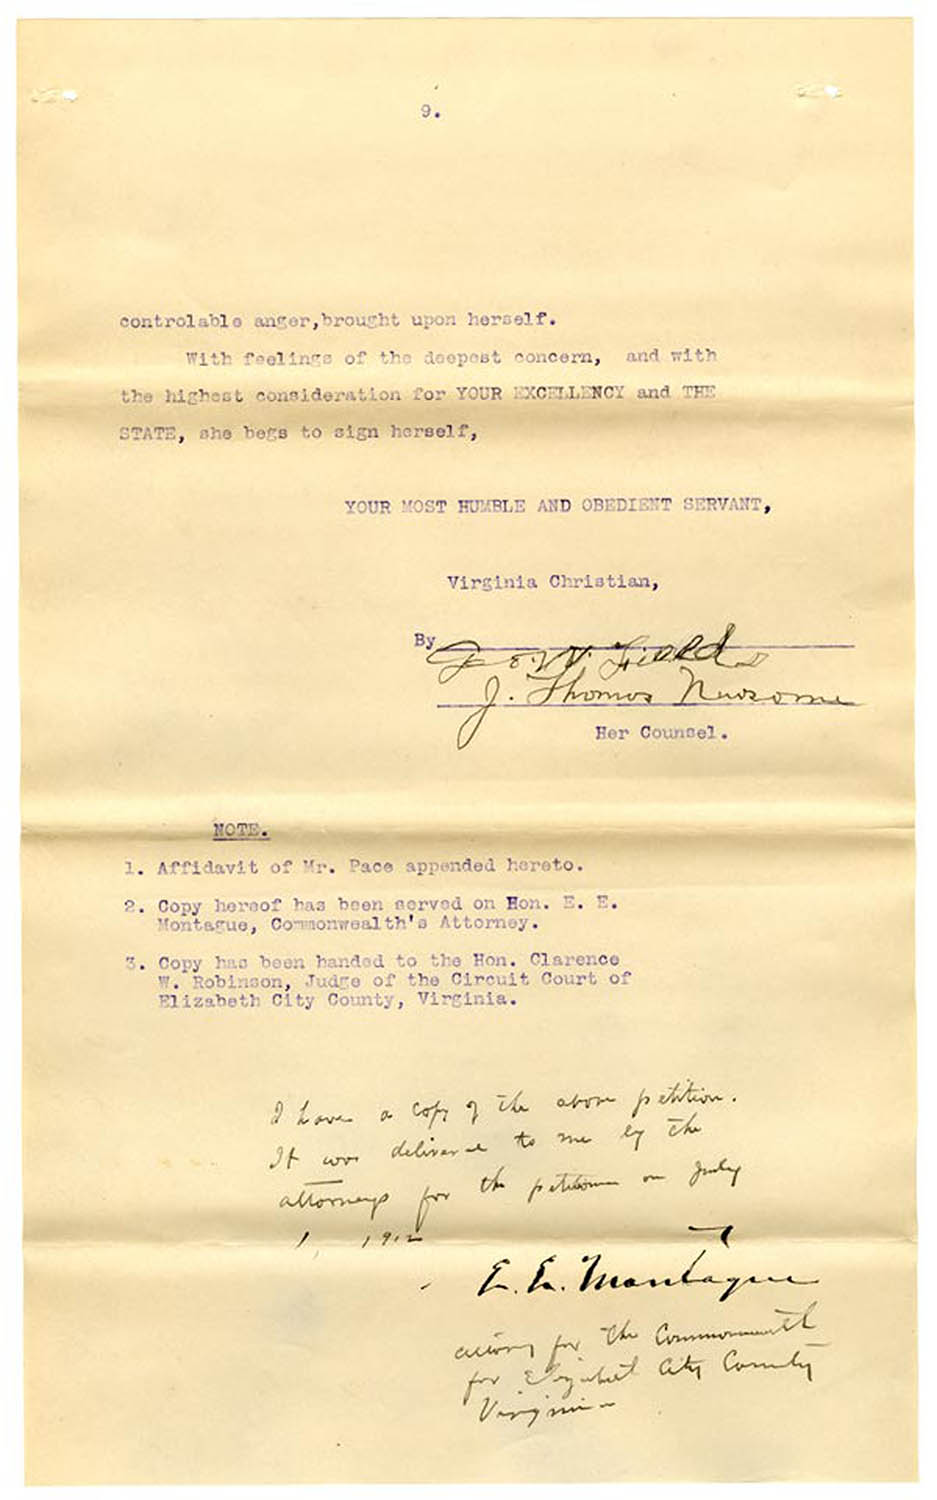 9.
controlable anger,brought upon herself.
With feelings of the deepest concern, and with
the highest consideration for YOUR EXCELLENCY and THE
STATE, she begs to sign herself,
YOUR MOST HUMBLE AND OBEDIENT SERVANT,
Virginia Christian,
By
Geo. W. Fields
J. Thomas Newsome
Her Counsel.
NOTE.
1. Affidavit of Mr. Pace appended hereto.
2. Copy hereof has been served on Hon. E. E.
Montague, Commonwealth's Attorney.
3. Copy has been handed to the Hon. Clarence
W. Robinson, Judge of the Circuit Court of
Elizabeth City County, Virginia.
I have a copy of the above petition.
It was delivered to me by the
attorneys for the petitioner on July
1, 1912
E. E. Montague
attorney for the Commonwealth
for Elizabeth City County
Virginia